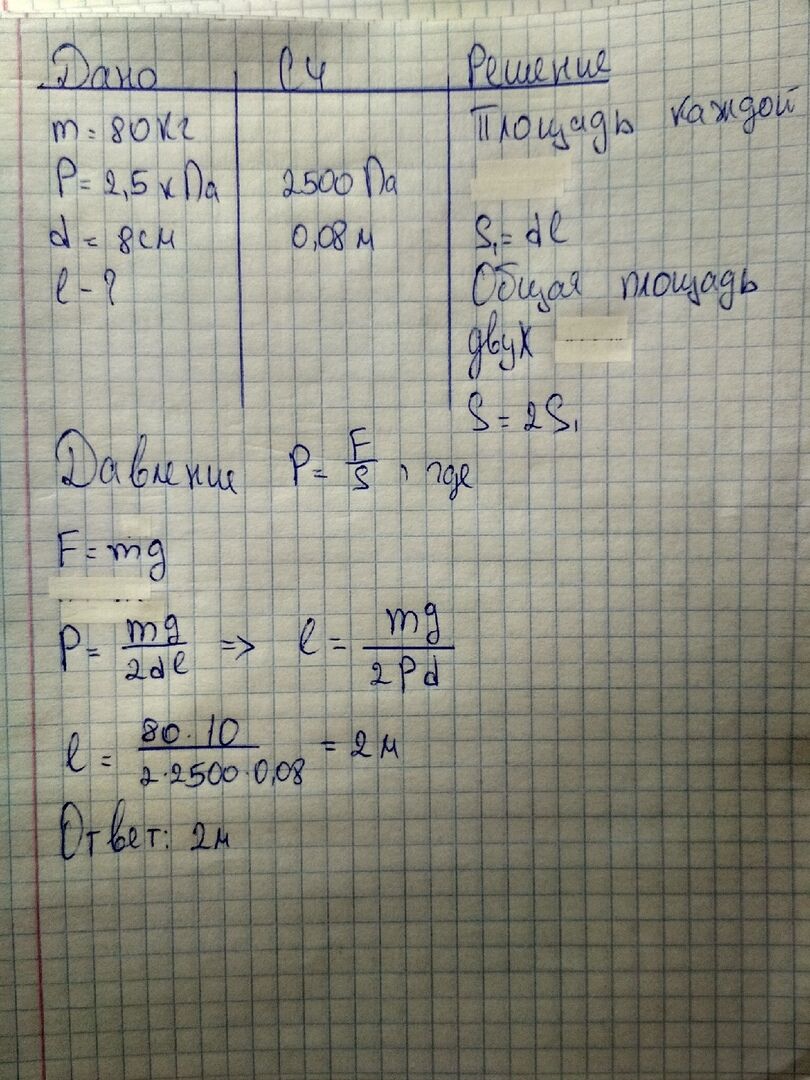 Дано СИ Решение
m = 80 кг Площадь каждой
P = 2,5 кПа 2500 Па
d = 8 см 0,08 м S₁ = dl
l - ? Общая площадь
двух
S = 2S₁
Давление P = F/S, где
F = mg
P = mg/2dl => l = mg/2Pd
l = 80·10/2·2500·0,08 = 2 м
Ответ: 2м